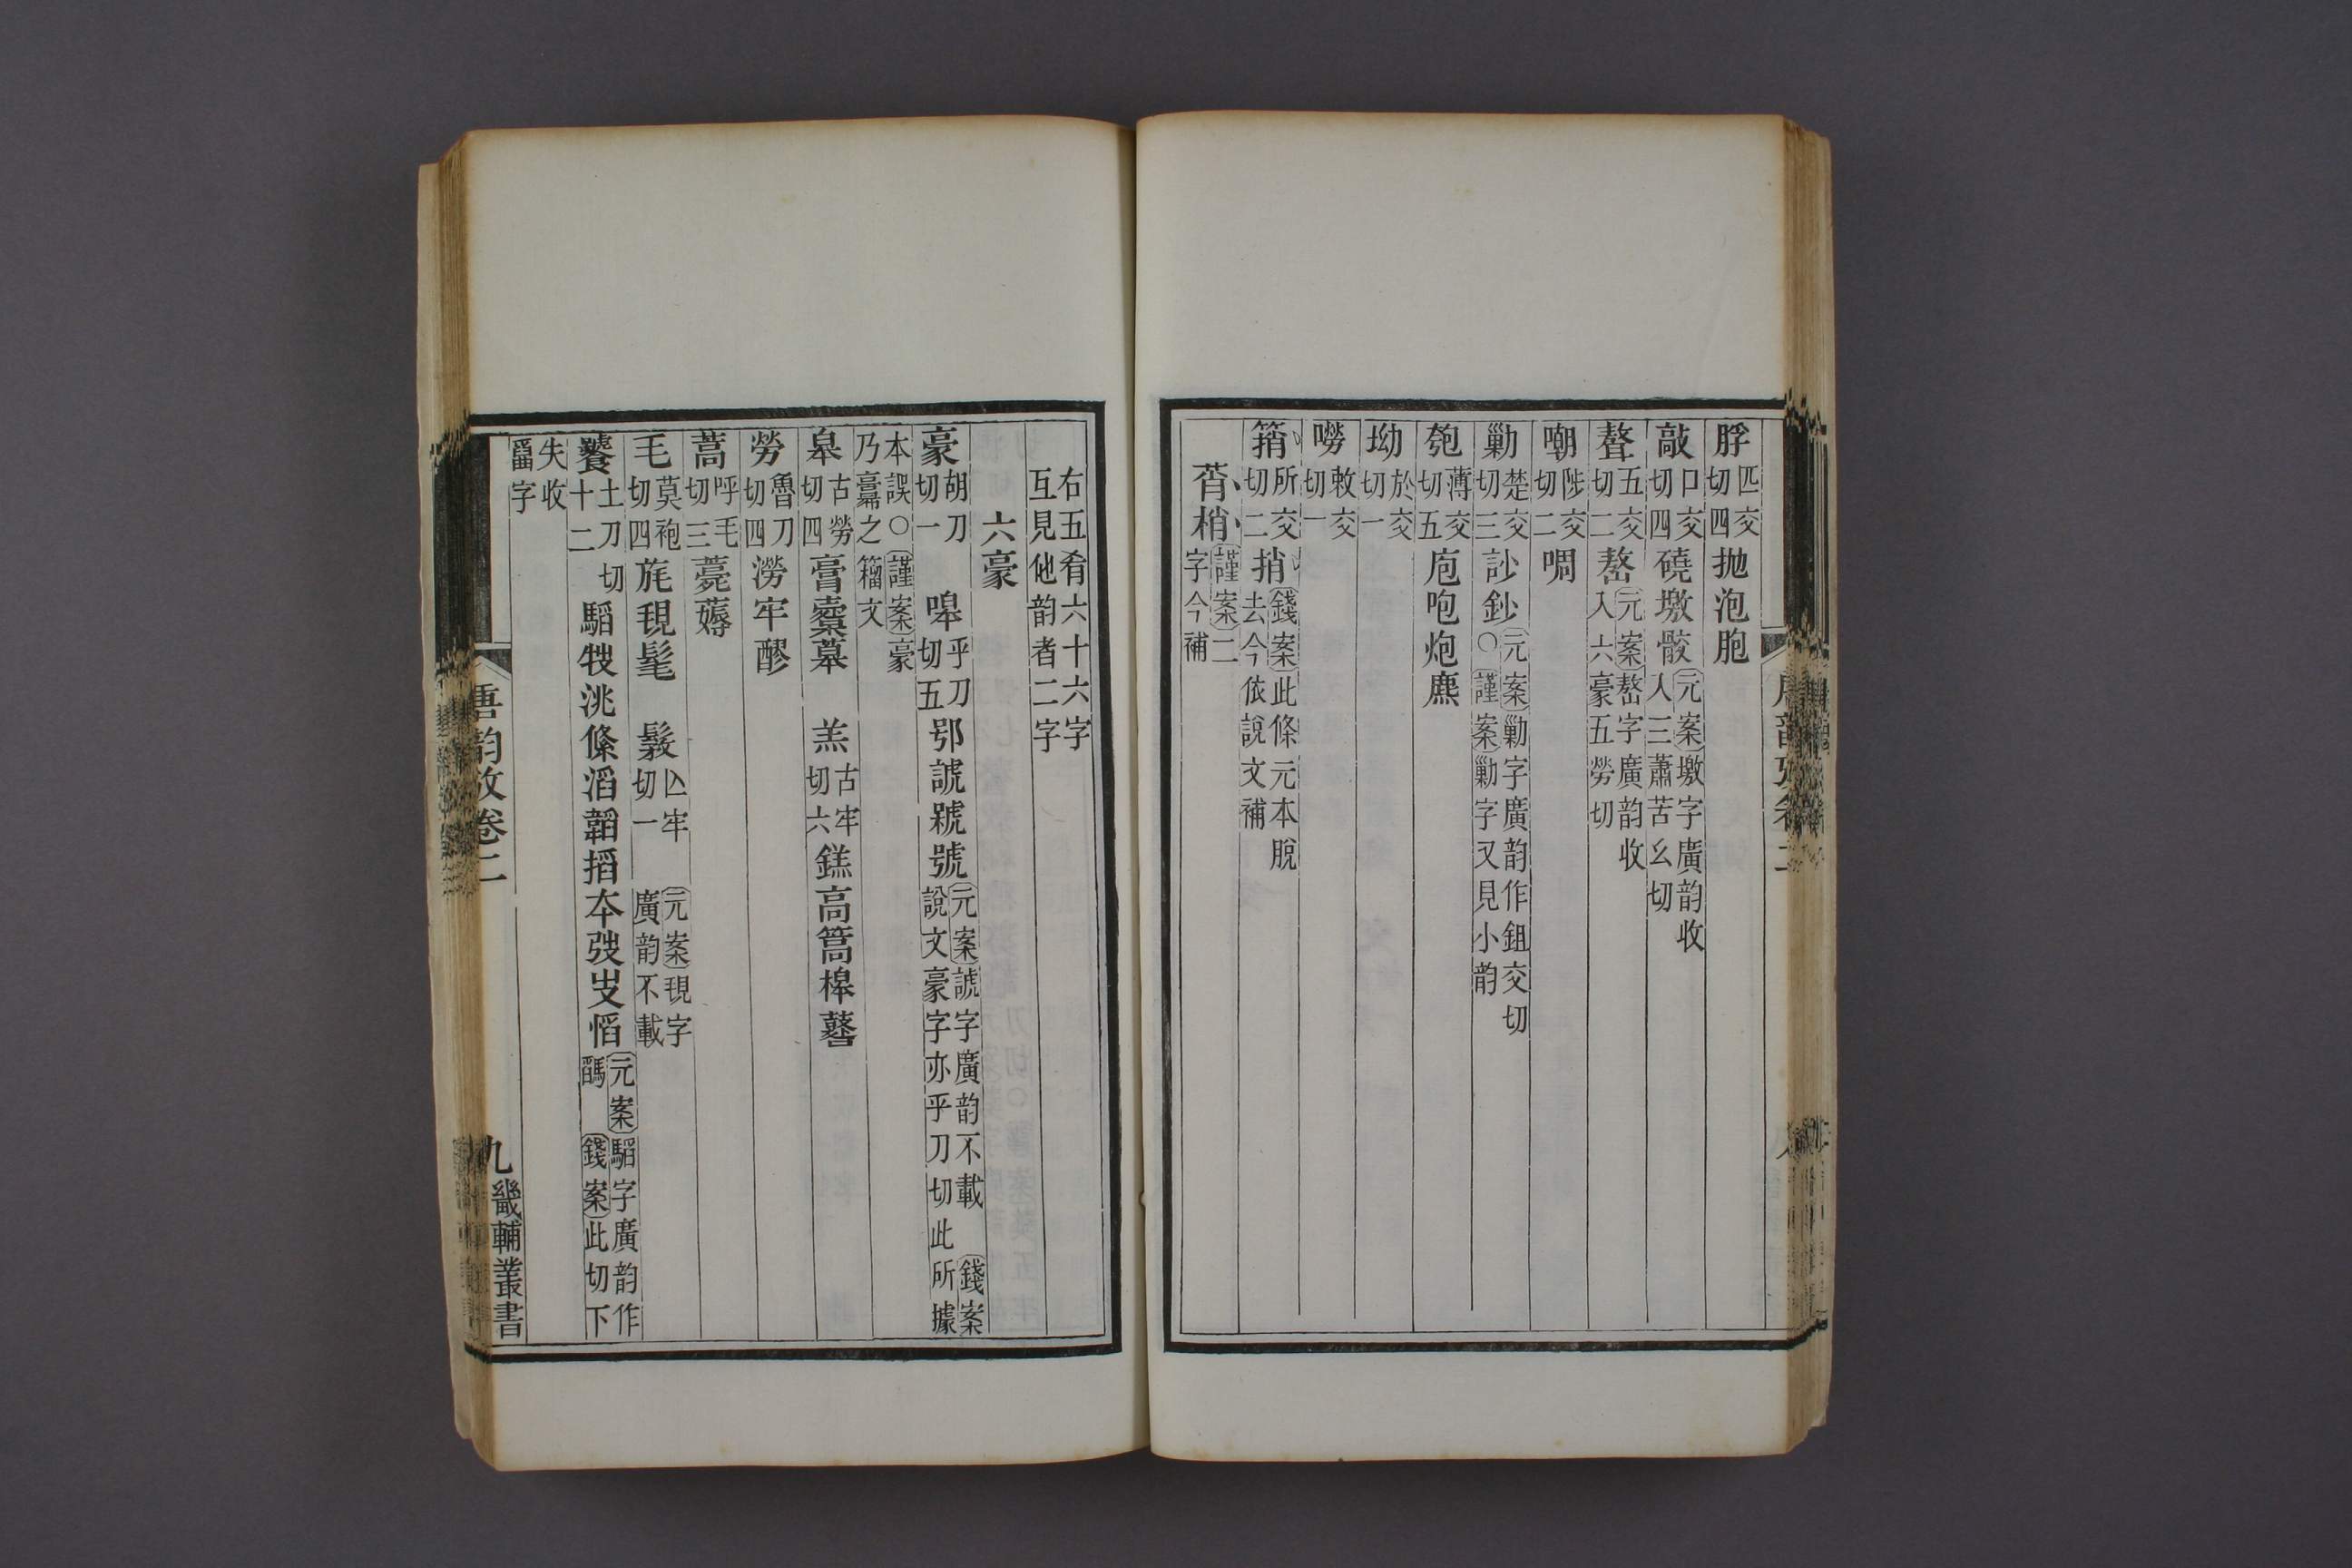 脬匹交切四抛泡胞
敲口交切四磽墽骹元案墽字廣韵收入三蕭苦幺切
聱五交切二嶅元案嶅字廣韵收入六豪五勞切
嘲陟交切二啁
勦楚交切三訬鈔元案勦字廣韵作鉏交切○謹案勦字又見小韵
匏薄交切五庖咆炮麃
坳於交切一
嘮敕交切一
箾所交切二捎錢案此條元本脫去今依說文補
莦梢謹案二字今補
右五肴六十六字互見他韵者二字
六豪
豪胡刀切一 嘷乎刀切五鄂諕䝞號元案諕字廣韵不載 錢案說文豪字亦乎刀切此所據
本誤○謹案豪乃𩫕之籀文
皋古勞切四膏櫜䔌 羔古牢切六鎡高篙槔鼛
勞魯刀切四澇牢醪
蒿呼毛切三薧薅
毛莫袍切四旄覒髦 鬏亾牢切一 元案覒字廣韵不載
饕土刀切十二騊牫洮絛滔韜搯夲弢𡴘慆元案騊字廣韵作䮵 錢案此切下
失收畐字
唐韵攷卷二
九
畿輔叢書